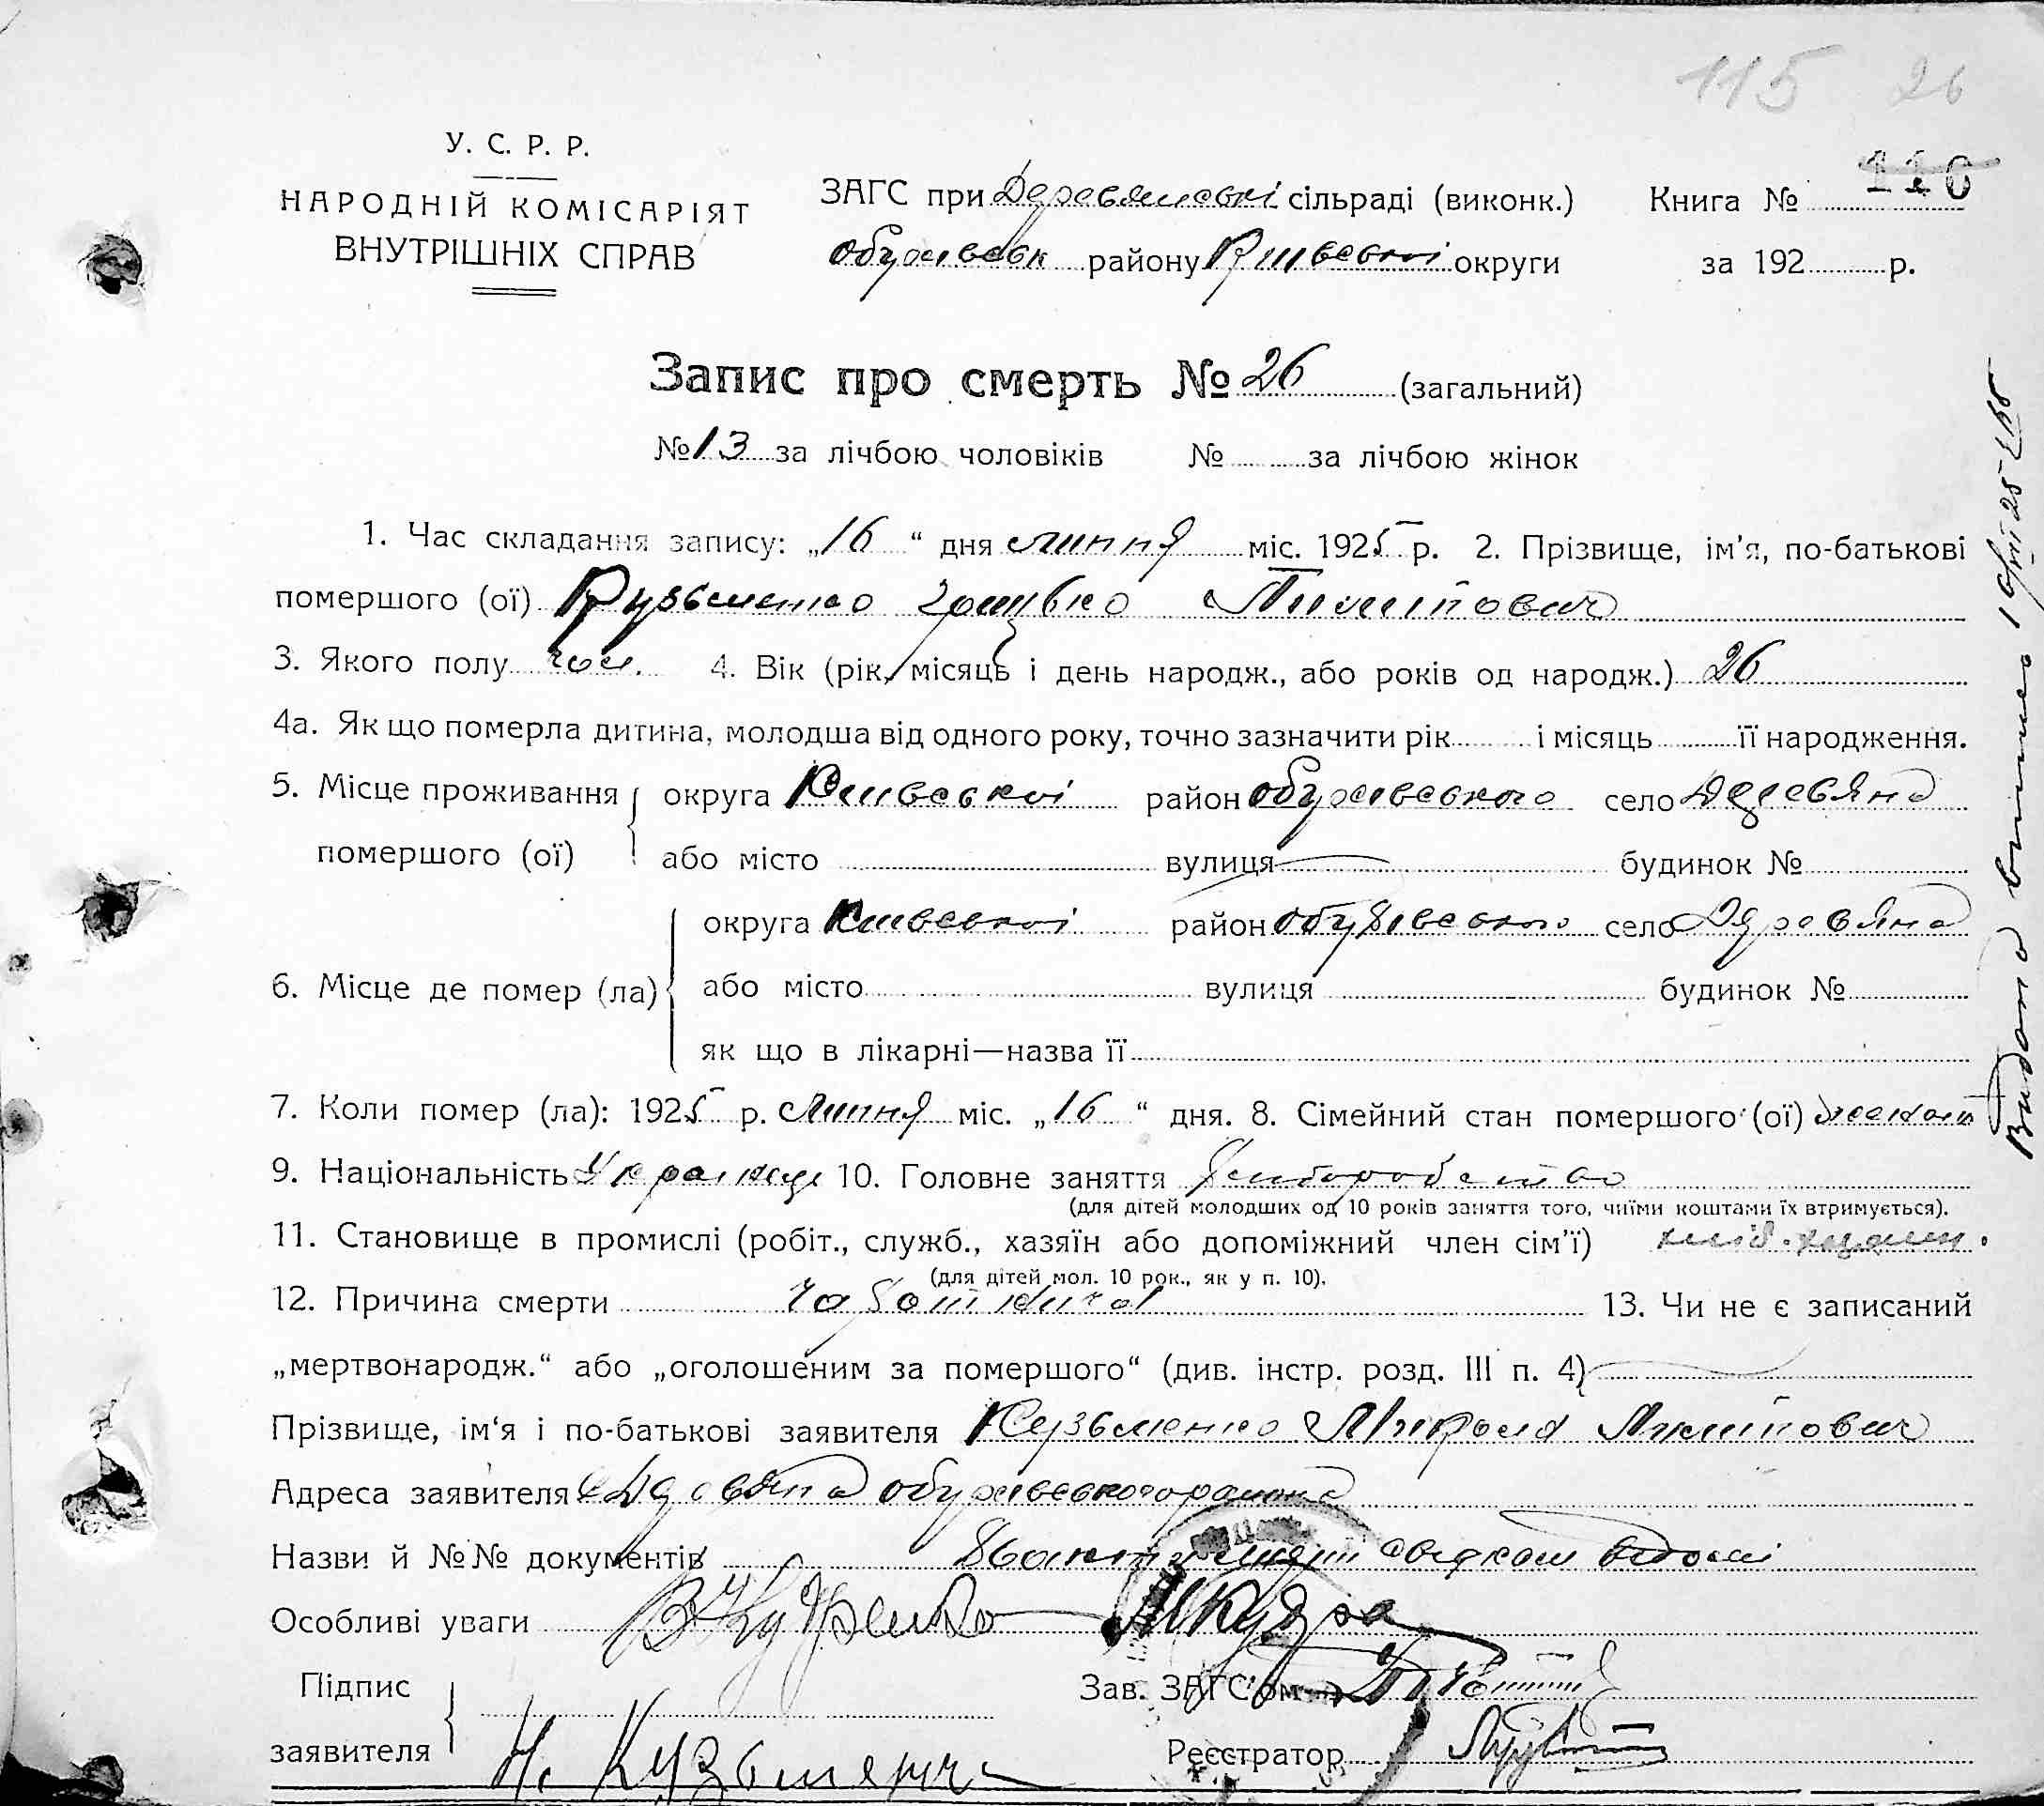 115 26
У. С. Р. Р.
НАРОДНІЙ КОМІСАРІЯТ
ВНУТРІШНІХ СПРАВ
ЗАГС при Деревянські сільраді (виконк.)
обухівськ району Київської округи
Книга № 110
за 192 р.
Запис про смерть № 26 (загальний)
№ 13 за лічбою чоловіків № за лічбою жінок
1. Час складання запису: „16“ дня липня міс. 1925 р. 2. Прізвище, ім'я, по-батькові
помершого (ої) Кузьменко
3. Якого полу чол. 4. Вік (рік, місяць і день народж., або років од народж.) 26
4а. Як що померла дитина, молодша від одного року, точно зазначити рік і місяць її народження.
5. Місце проживання округа Київської район обухівського село Деревяна
помершого (ої) або місто вулиця будинок №
округа Київської район обухівського село Деревяна
6. Місце де помер (ла) або місто вулиця будинок №
як що в лікарні—назва її
7. Коли помер (ла): 1925 р. липня міс. „16“ дня. 8. Сімейний стан помершого (ої)
9. Національність Українець 10. Головне заняття
(для дітей молодших од 10 років заняття того, чиїми коштами їх втримується).
11. Становище в промислі (робіт., служб., хазяїн або допоміжний член сім'ї)
(для дітей мол. 10 рок., як у п. 10).
12. Причина смерти 13. Чи не є записаний
„мертвонародж.“ або „оголошеним за помершого“ (див. інстр. розд. III п. 4)
Прізвище, ім'я і по-батькові заявителя Кузьменко
Адреса заявителя обухівського района
Назви й №№ документів
Особливі уваги
Підпис
заявителя Н. Кузьменко
Зав. ЗАГС'ом
Реєстратор